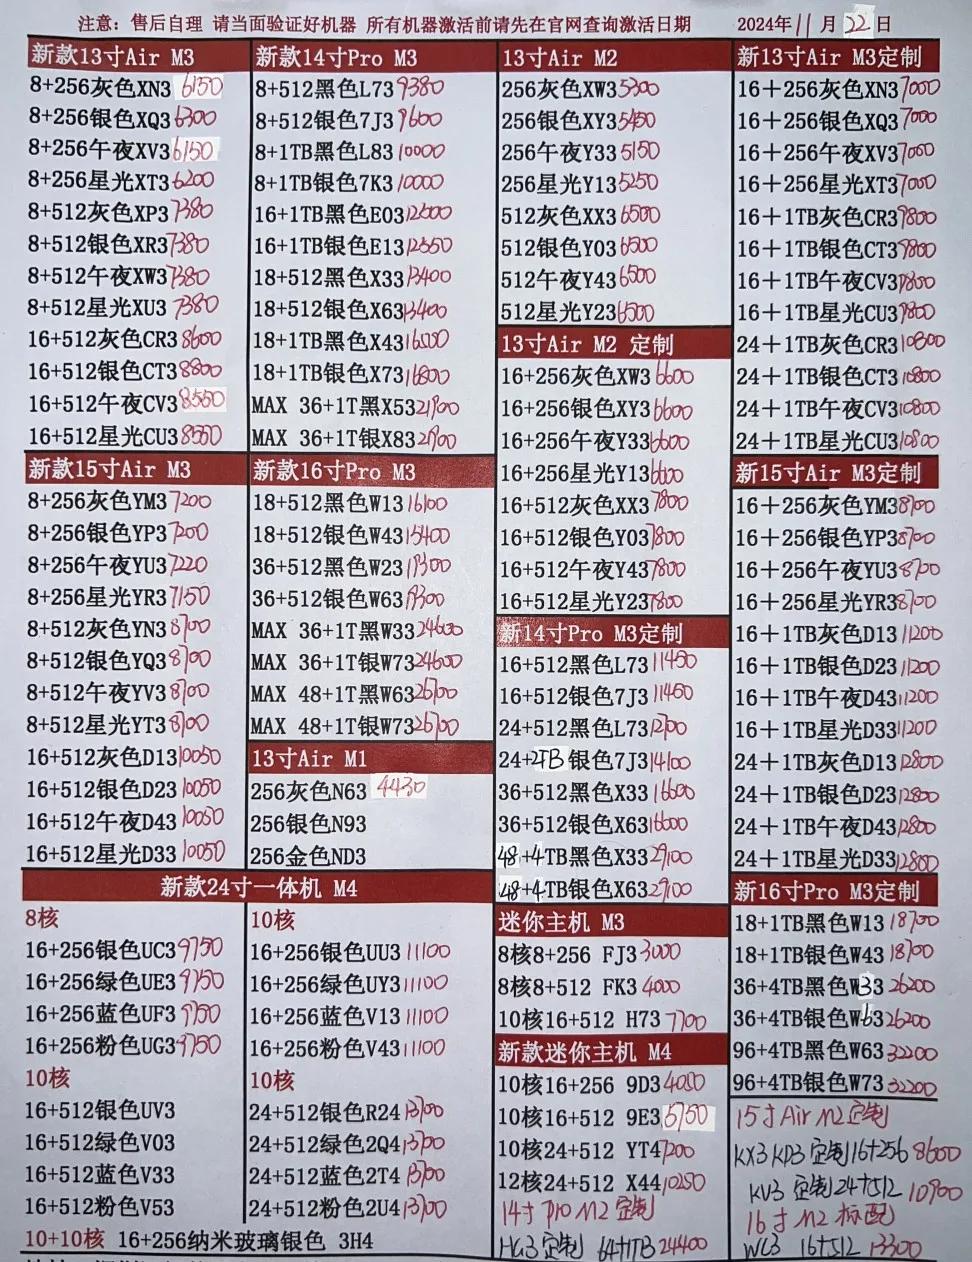 注意: 售后自理 请当面验证好机器 所有机器激活前请先在官网查询激活日期 2024年11月22日
新款13寸Air M3
8+256灰色XN3 6150
8+256银色XQ3 6300
8+256午夜XV3 6150
8+256星光XT3 6200
8+512灰色XP3 7380
8+512银色XR3 7380
8+512午夜XW3 7380
8+512星光XU3 7380
16+512灰色CR3 8600
16+512银色CT3 8800
16+512午夜CV3 8550
16+512星光CU3 8550
新款15寸Air M3
8+256灰色YM3 7200
8+256银色YP3 7200
8+256午夜YU3 7220
8+256星光YR3 7150
8+512灰色YN3 8700
8+512银色YQ3 8700
8+512午夜YV3 8700
8+512星光YT3 8700
16+512灰色D13 10050
16+512银色D23 10050
16+512午夜D43 10050
16+512星光D33 10050
新款14寸Pro M3
8+512黑色L73 9380
8+512银色7J3 9600
8+1TB黑色L83 10000
8+1TB银色7K3 10000
16+1TB黑色E03 12500
16+1TB银色E13 12550
18+512黑色X33 13400
18+512银色X63 13400
18+1TB黑色X43
18+1TB银色X73 16800
MAX 36+1T黑X53 21900
MAX 36+1T银X83 21900
新款16寸Pro M3
18+512黑色W13 16100
18+512银色W43 15400
36+512黑色W23 19300
36+512银色W63 19300
MAX 36+1T黑W33 24600
MAX 36+1T银W73 24600
MAX 48+1T黑W63 26700
MAX 48+1T银W73 26700
13寸Air M1
256灰色N63 4430
256银色N93
256金色ND3
新款24寸一体机 M4
8核
16+256银色UC3 9750
16+256绿色UE3 9750
16+256蓝色UF3 9750
16+256粉色UG3 9750
10核
16+512银色UV3
16+512绿色V03
16+512蓝色V33
16+512粉色V53
10核
16+256银色UU3 11100
16+256绿色UY3 11100
16+256蓝色V13 11100
16+256粉色V43 11100
10核
24+512银色R24 13700
24+512绿色2Q4 13700
24+512蓝色2T4 13700
24+512粉色2U4 13700
10+10核 16+256纳米玻璃银色 3H4
13寸Air M2
256灰色XW3 5300
256银色XY3 5450
256午夜Y33 5150
256星光Y13 5250
512灰色XX3 6500
512银色Y03 6500
512午夜Y43 6500
512星光Y23 6500
13寸Air M2 定制
16+256灰色XW3 6600
16+256银色XY3 6600
16+256午夜Y33 6600
16+256星光Y13 6600
16+512灰色XX3 7800
16+512银色Y03 7800
16+512午夜Y43 7800
16+512星光Y23 7800
新14寸Pro M3定制
16+512黑色L73 11450
16+512银色7J3 11450
24+512黑色L73 12700
24+2TB银色7J3 14100
36+512黑色X33 16600
36+512银色X63 16600
48+4TB黑色X33 29100
48+4TB银色X63 27100
迷你主机 M3
8核8+256 FJ3 3000
8核8+512 FK3 4000
10核16+512 H73 7700
新款迷你主机 M4
10核16+256 9D3 4050
10核16+512 9E3 5750
10核24+512 YT4 7200
12核24+512 X44 10250
14寸 Pro M2 定制
HG3 定制 64+1TB 24400
新13寸Air M3定制
16+256灰色XN3 7000
16+256银色XQ3 7000
16+256午夜XV3 7000
16+256星光XT3 7000
16+1TB灰色CR3 9800
16+1TB银色CT3 9800
16+1TB午夜CV3 9800
16+1TB星光CU3 9800
24+1TB灰色CR3 10800
24+1TB银色CT3 10800
24+1TB午夜CV3 10800
24+1TB星光CU3 10800
新15寸Air M3定制
16+256灰色YM3 8700
16+256银色YP3 8700
16+256午夜YU3 8700
16+256星光YR3 8700
16+1TB灰色D13 11200
16+1TB银色D23 11200
16+1TB午夜D43 11200
16+1TB星光D33 11200
24+1TB灰色D13 12800
24+1TB银色D23 12800
24+1TB午夜D43 12800
24+1TB星光D33 12800
新16寸Pro M3定制
18+1TB黑色W13 18700
18+1TB银色W43 18700
36+4TB黑色W33 26200
36+4TB银色W63 26200
96+4TB黑色W63 32200
96+4TB银色W73 32200
15寸Air M2定制
KX3 KD3 定制16+256 8600
KV3 定制 24+512 10900
16寸 M2 标配
WC3 16+512 13300